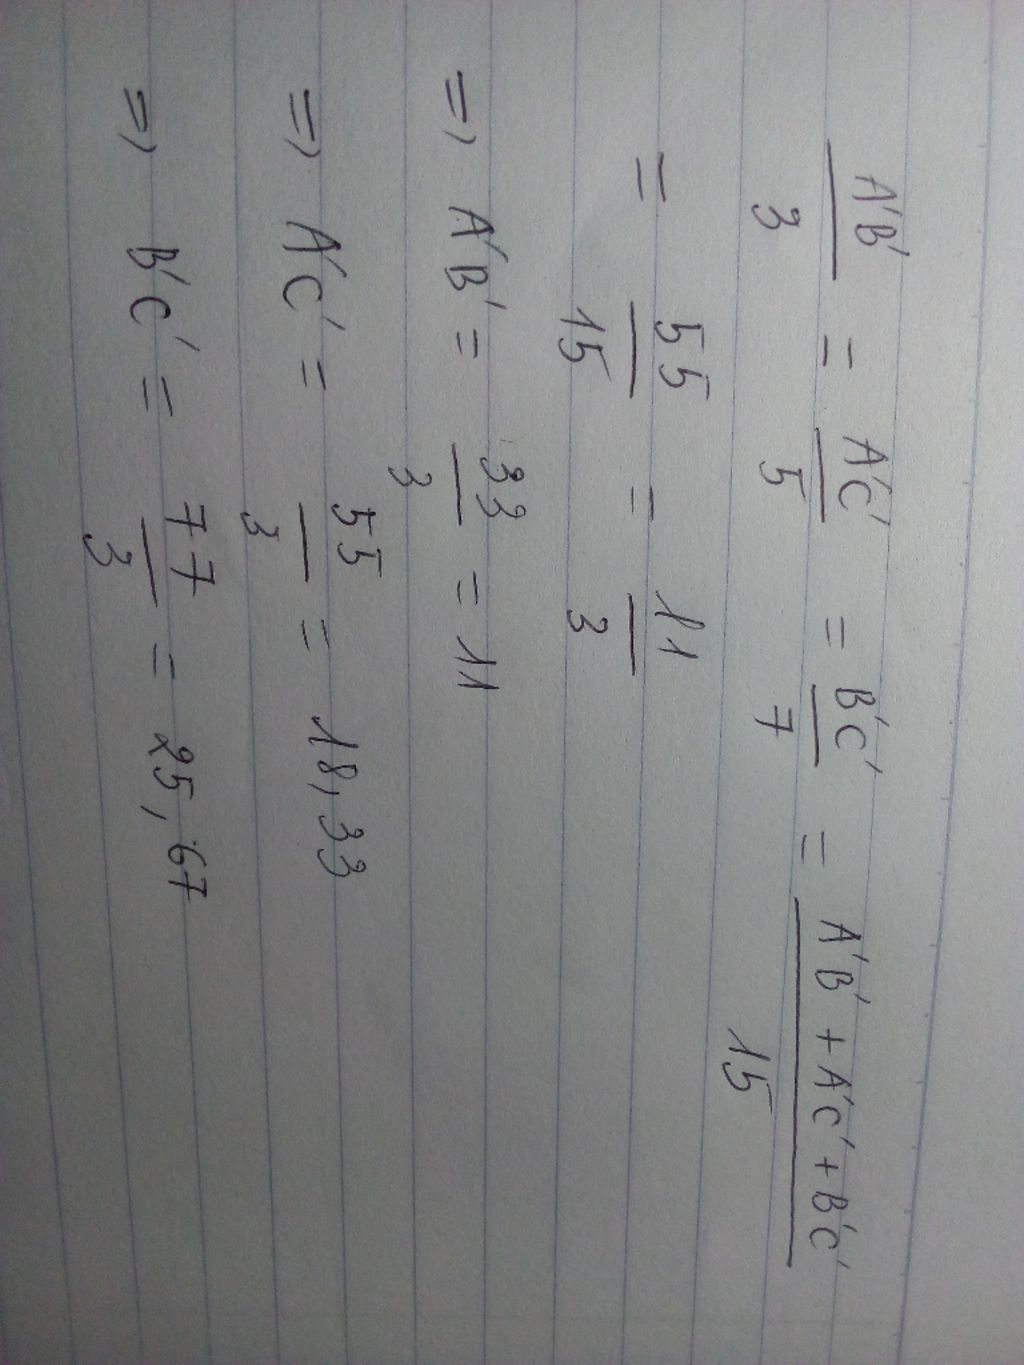 A'B'/3 = A'C'/5 = B'C'/7 = A'B' + A'C' + B'C'/15
= 55/15 = 11/3
=> A'B' = 33/3 = 11
=> A'C' = 55/3 = 18,33
=> B'C' = 77/3 = 25,67